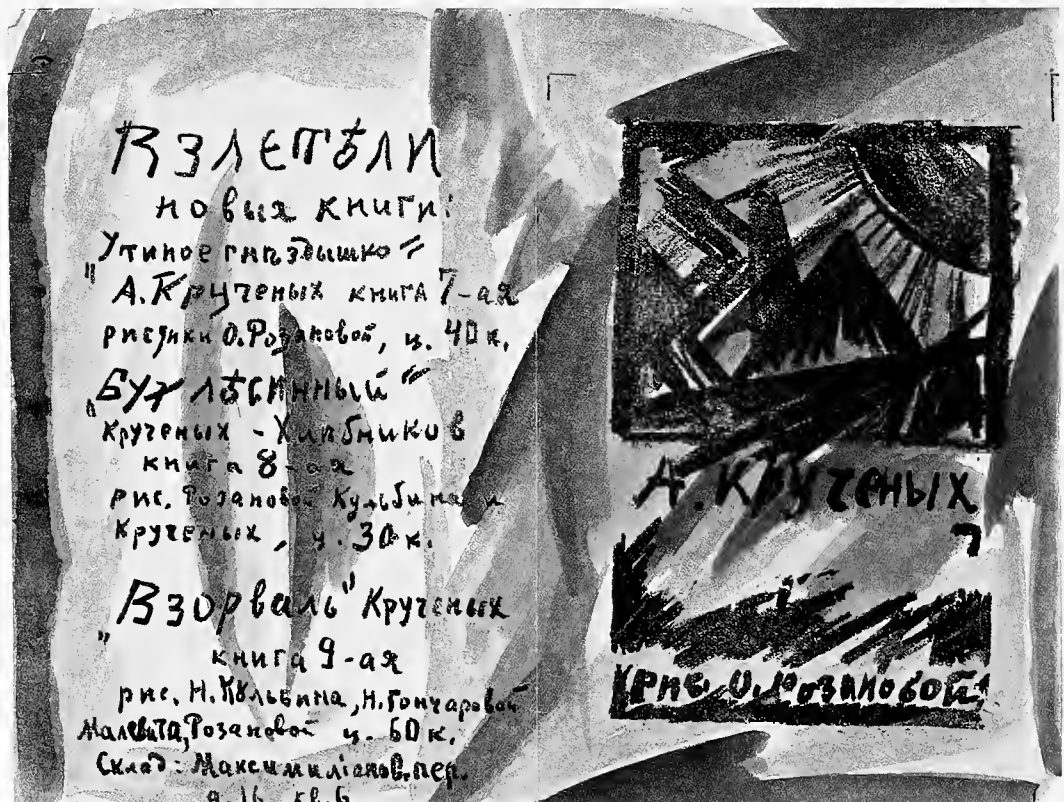 Взлетѣли
новыя книги:
"Утиное гнѣздышко"
А. Крученых книга 7-ая
рисунки О. Розановой, ц. 40 к.
"Бух лѣсинный"
Крученых - Хлѣбников
книга 8-ая
рис. Розановой Кульбина и
Крученых, ц. 30 к.
"Взорваль" Крученых
книга 9-ая
рис. Н. Кульбина, Н. Гончаровой
Малевича, Розановой ц. 60 к.
Склад: Максимиліанов. пер.
д. 16 кв. 6
А. Крученых
7
рис. О. Розановой